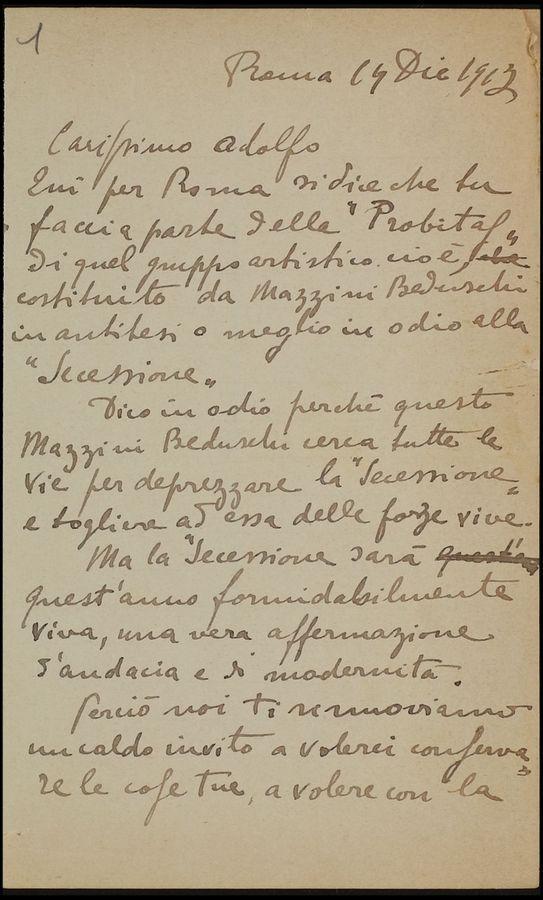 1
Roma 14 Dic 1913
Carissimo Adolfo
Qui per Roma si dice che tu
faccia parte della "Probitas"
di quel gruppo artistico cioè, che
costituito da Mazzini Beduschi
in antitesi o meglio in odio alla
"Secessione"
Dico in odio perchè questo
Mazzini Beduschi cerca tutte le
vie per deprezzare la "Secessione"
e togliere ad essa delle forze vive.
Ma la "Secessione sarà quest'a
quest'anno formidabilmente
viva, una vera affermazione
d'audacia e di modernità.
Perciò noi ti rinnoviamo
un caldo invito a volerci conserva
re le cose tue, a volere con la